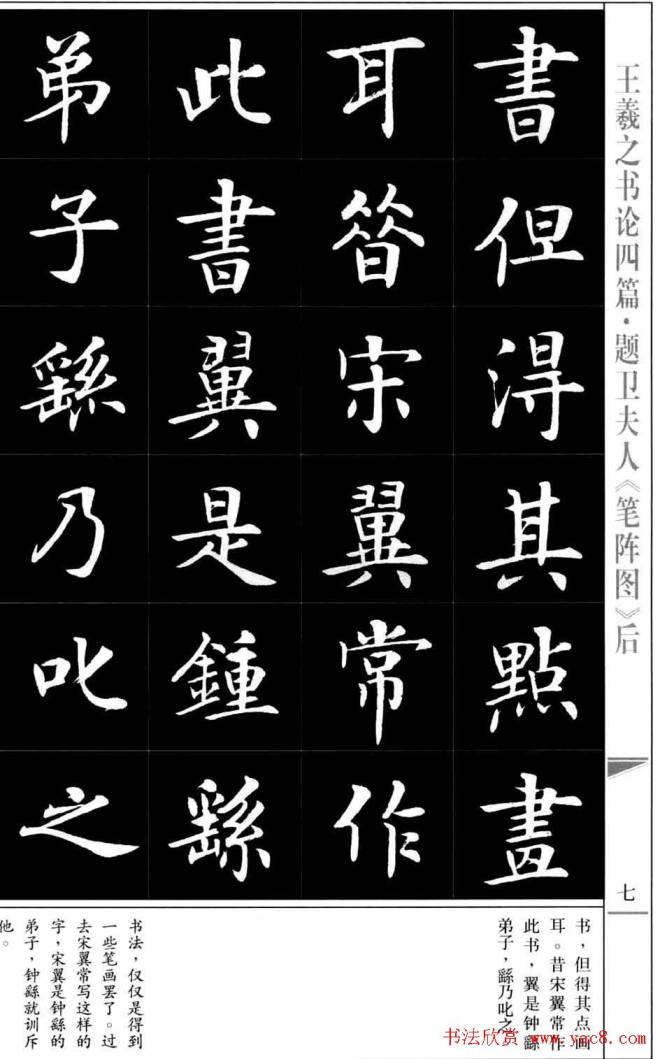 書但淂其點畫
耳昝宋翼常作
此書翼是鍾繇
弟子繇乃叱之
王羲之书论四篇·题卫夫人《笔阵图》后
七
书，但得其点画
耳。昔宋翼常作
此书，翼是钟繇
弟子，繇乃叱之。
书法，仅仅是得到
一些笔画罢了。过
去宋翼常写这样的
字，宋翼是钟繇的
弟子，钟繇就训斥
他。
书法欣赏 www.yac8.com